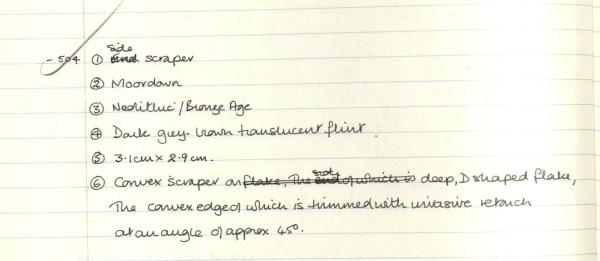 side
- 504 ① ~~end~~ scraper
② Moordown
③ Neolithic / Bronze Age
④ Dark grey-brown translucent flint.
⑤ 3.1cm x 2.9cm.
side
⑥ Convex scraper on ~~flake, The end of which is~~ deep, D shaped flake,
The convex edge of which is trimmed with invasive retouch
at an angle of approx 45°.